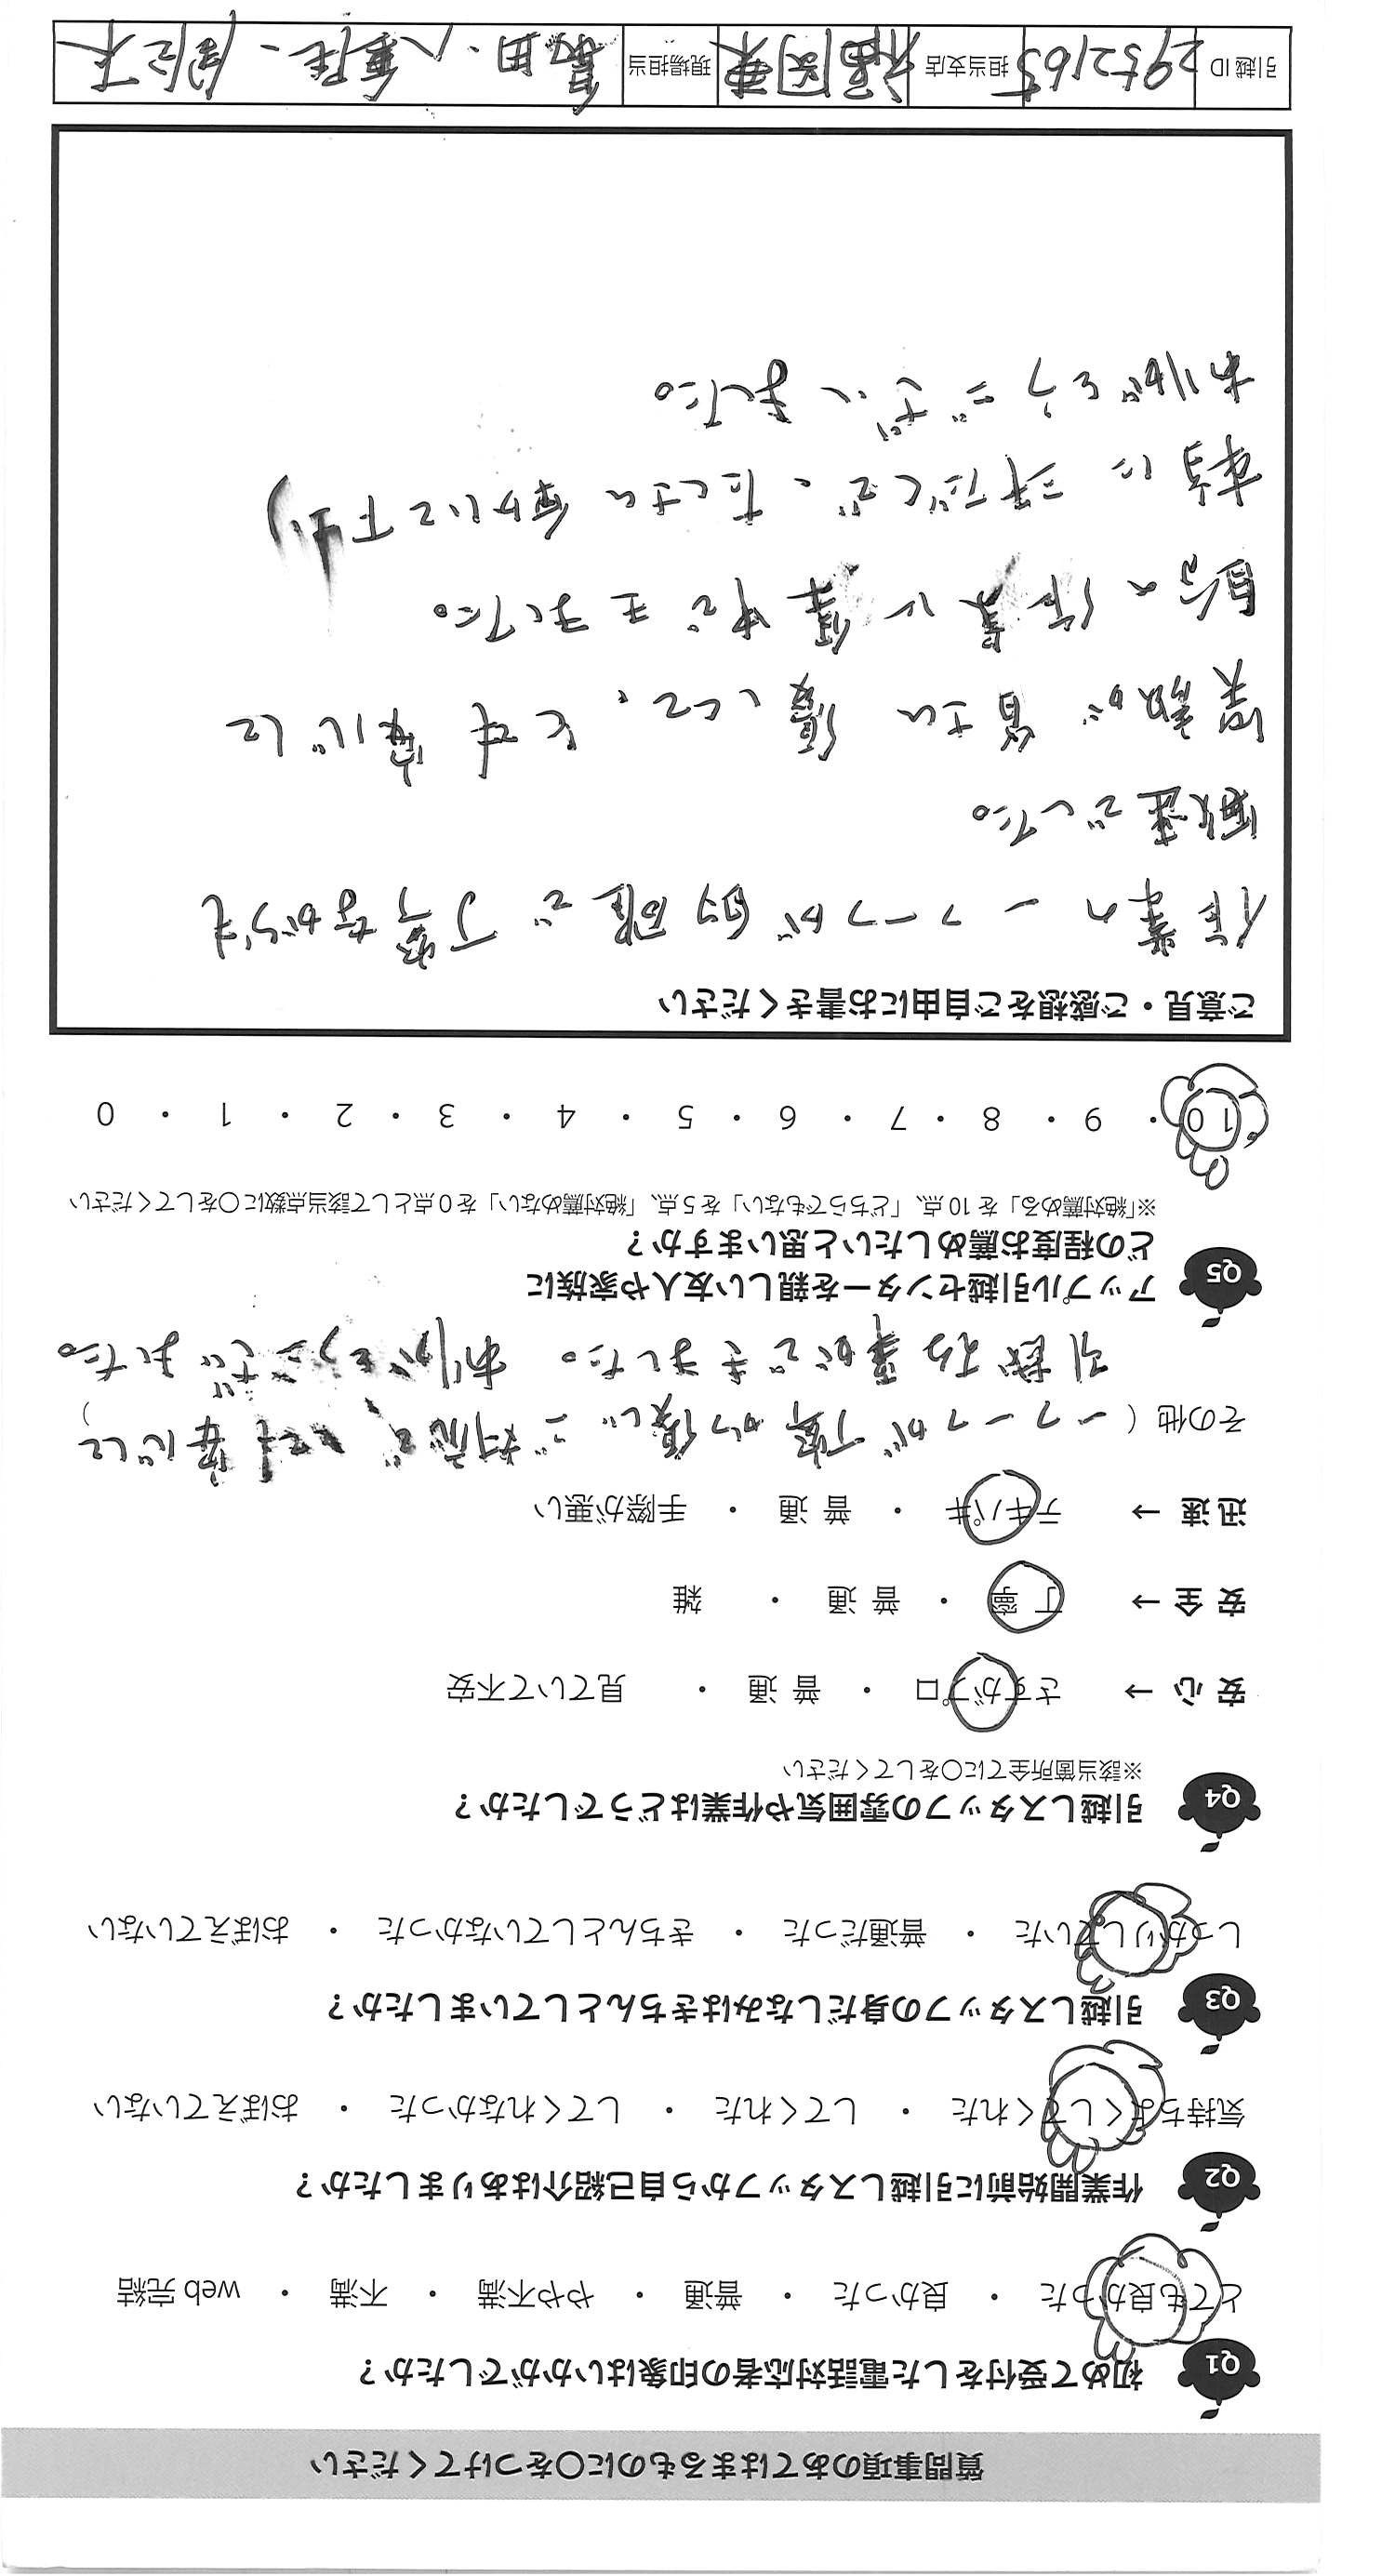 質問事項のあてはまるものに○をつけてください
Q1 初めて受付をした電話対応者の印象はいかがでしたか？
とても良かった ・ 良かった ・ 普通 ・ やや不満 ・ 不満 ・ web 完結
Q2 作業開始前に引越しスタッフから自己紹介はありましたか？
気持ちよくしてくれた ・ してくれた ・ してくれなかった ・ おぼえていない
Q3 引越しスタッフの身だしなみはきちんとしていましたか？
しっかりしていた ・ 普通だった ・ きちんとしていなかった ・ おぼえていない
Q4 引越しスタッフの雰囲気や作業はどうでしたか？
※該当箇所全てに○をしてください
安心 → さすがプロ ・ 普通 ・ 見ていて不安
安全 → 丁寧 ・ 普通 ・ 雑
迅速 → テキパキ ・ 普通 ・ 手際が悪い
その他（一つ一つが丁寧かつ優しいご対応で、大変安心して）
引越作業ができました。ありがとうございました。
Q5 アップル引越センターを親しい友人や家族に
どの程度お薦めしたいと思いますか？
※「絶対薦める」を 10 点、「どちらでもない」を 5 点、「絶対薦めない」を 0 点として該当点数に○をしてください
10 ・ 9 ・ 8 ・ 7 ・ 6 ・ 5 ・ 4 ・ 3 ・ 2 ・ 1 ・ 0
ご意見・ご感想をご自由にお書きください
作業の一つ一つが的確で丁寧ながらも
敏速でした。
笑顔が皆さん優しくて、とても安心して
自分の作業に集中できました。
本当に三人だくで、たくさん動いて下さり
ありがとうございました。
引越 ID 2952165 担当支店 福岡東 現場担当 冨田、八重陸、